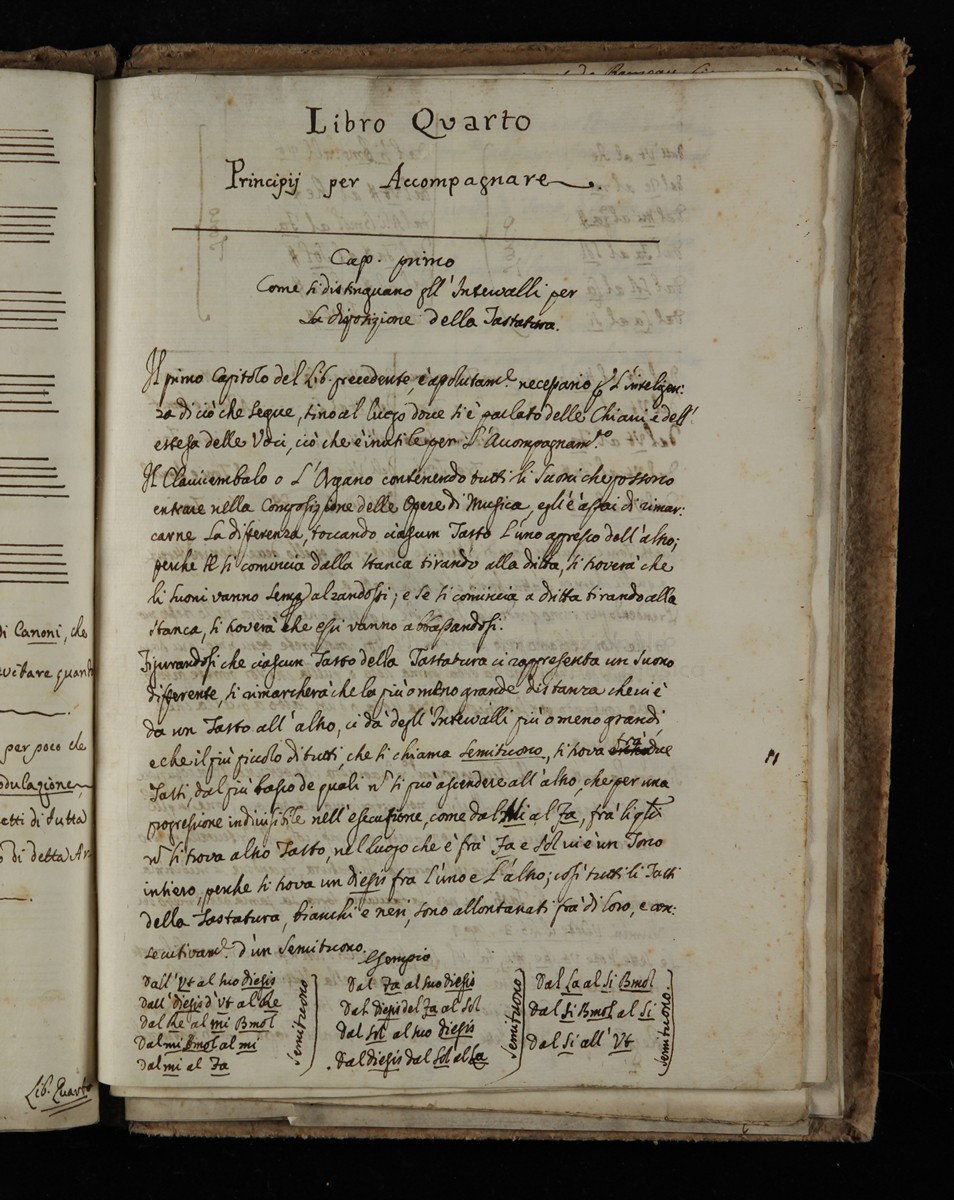 di Canoni, che
evitare quant
per poco che
odulazione
etti di tutta
o di detta Ar
Lib. Quarto
Libro Qvarto
Principij per Accompagnare
Cap. primo
Come si distinguano gl' Intervalli per
La disposizione della Tastatura.
Il primo Capitolo del Lib. precedente, è assolutam.e necessario p L'inteligen:
za di ciò che segue, sino al luogo dove si è parlato delle Chiavi e dell'
estesa delle Voci, ciò che è inutile per L'Accompagnam.to
Il Clavicembalo o L'Organo contenendo tutti li Suoni che possono
entrare nella Composizione delle Opere di Musica, egl'è assai di rimar:
carne La diferenza, toccando ciascun Tasto L'uno appresso dell'altro;
perche se si comincia dalla stanca tirando alla dritta, si troverà che
li suoni vanno semp alzandosi; e se si comincia a dritta tirando alla
stanca, si troverà che essi vanno abbassandosi.
Figurandosi che ciascun Tasto della Tastatura ci rappresenta un suono
differente, si rimarcherà che la più o meno grande distanza che vi è
da un Tasto all'altro, ci dà degl'Intervalli più o meno grandi
e che il più piccolo di tutti, che si chiama Semituono, si trova frà due
Tasti, dal più basso de quali n si può ascendere all'altro, che per una
progressione indivisibile nell'esecuzione, come dal Mi al Fa, frà li qli
n si trova altro Tasto, nel luogo che è frà Fa e Sol vi è un Tono
intiero, perche si trova un diesis fra l'uno e L'altro; così tutti li Tasti
della Tastatura, bianchi e neri, sono allontanati frà di loro, e con:
secutivam.e d'un Semituono.
Esempio
Dall'Vt al suo diesis
Dall'diesis d'Vt al Re
Dal Re al mi Bmol
Dal mi Bmol al mi
Dal mi al Fa
Semituono
Dal Fa al suo diesis
Dal Diesis del Fa al Sol
Dal Sol al suo diesis
Dal diesis dal Sol al La
Semituono
Dal La al Si Bmol
Dal Si Bmol al Si
Dal Si all'Vt
Semituono.